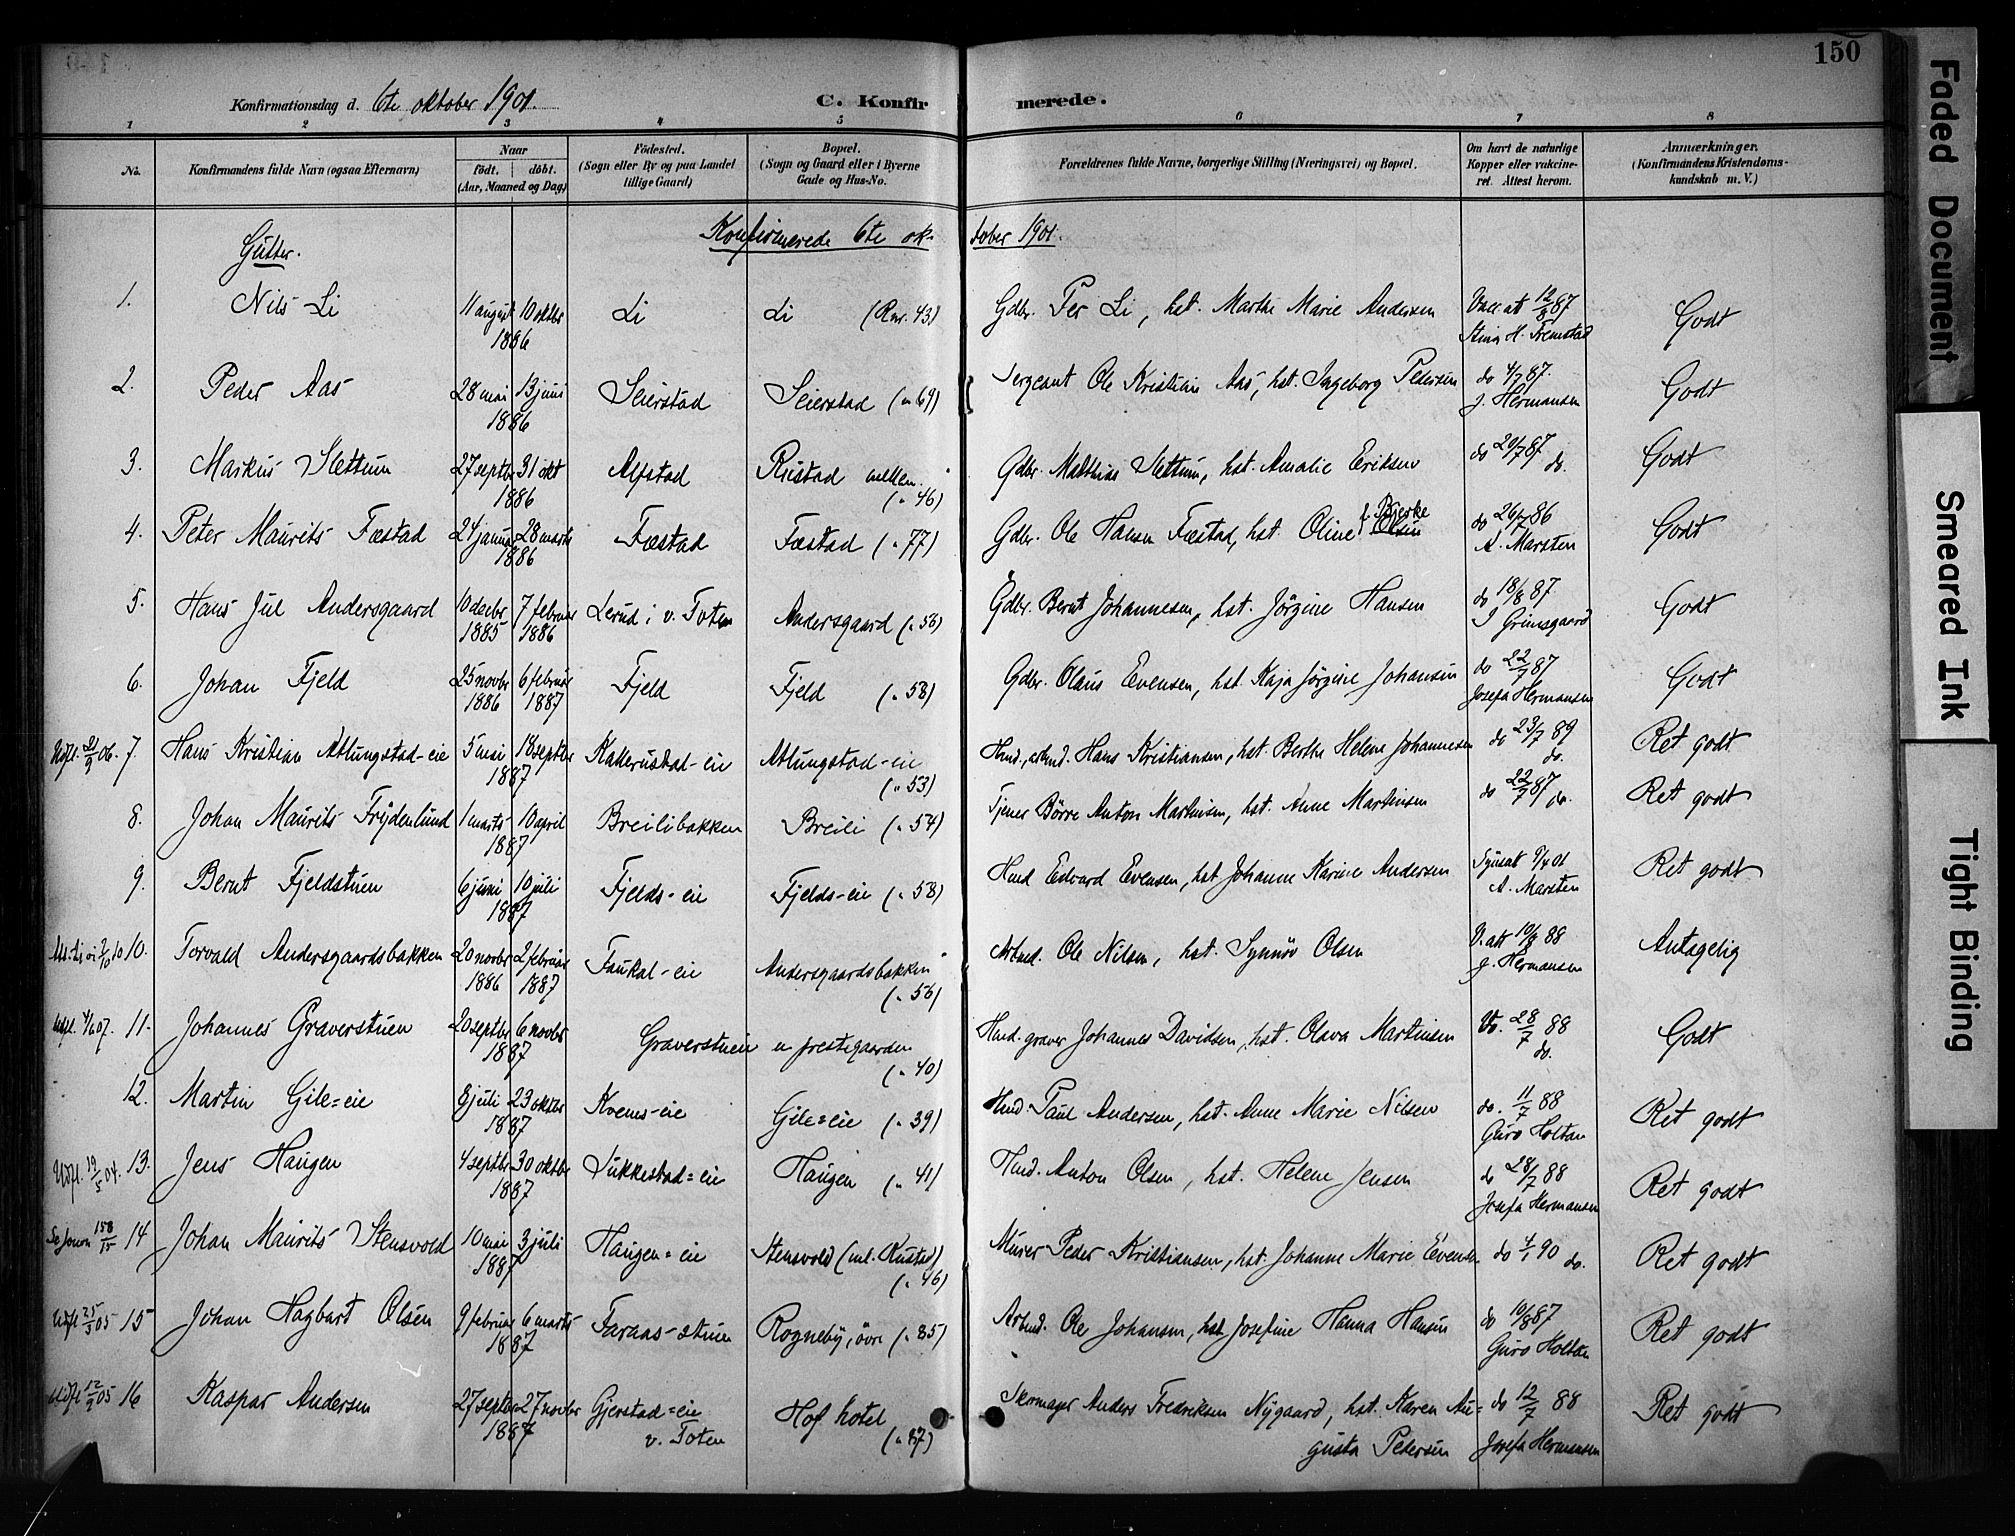 150
Konfirmationsdag d. 6te oktober 1901.
C. Konfirmerede.
1 2 3 4 5 6 7 8
No.
Konfirmandens fulde Navn (ogsaa Efternavn)
Naar
födt. döbt.
(Aar, Maaned og Dag)
Födested.
(Sogn eller By og paa Landet
tillige Gaard)
Bopæl.
(Sogn og Gaard eller i Byerne
Gade og Hus-No.
Forældrenes fulde Navne, borgerlige Stilling (Næringsvei) og Bopæl.
Om havt de naturlige
Kopper eller vakcine-
ret. Attest herom.
Anmærkninger.
(Konfirmandens Kristendoms-
kundskab m. V.)
Konfirmerede 6te oktober 1901.
Gutter.
1. Nils Li 11 august 10 oktbr 1886 Li Li (Rnr. 43) Gdbr. Per Li, hst. Marthe Marie Andersen Vacc.at 12/8 87 Stina H. Fremstad Godt
2. Peder Aas 28 mai 13 juni 1886 Seierstad Seierstad (" 69) Sergeant Ole Kristian Aas, hst. Ingeborg Pedersen do 4/7 87. J. Hermansen Godt
3. Markus Slettum 27 septbr 31 okt 1886 Alfstad Ristad mellem (" 46) Gdbr. Matthias Slettum, hst. Amalie Eriksen do 20/7 87 do. Godt
4. Peter Maurits Fæstad 24 januar 28 marts 1886 Fæstad Fæstad (" 77) Gdbr. Ole Hansen Fæstad, hst. Oline f. Bjerke Olsen do 26/7 86 A. Marsten Godt
5. Hans Jul Andersgaard 10 decbr 1885 7 februar 1886 Lerud i v. Toten Andersgaard (" 56) Gdbr. Bernt Johannesen, hst. Jörgine Hansen do 18/8 87 I Grimsgaard Godt
6. Johan Fjeld 25 novbr 1886 6 februar 1887 Fjeld Fjeld (" 58) Gdbr. Olaus Evensen, hst. Kaja Jörgine Johansen do 22/7 87 Josefa Hermansen Godt
7. Hans Kristian Atlungstad-eie 5 mai 18 septbr 1887 Kallerustad-eie Atlungstad-eie (" 53) Hmd., arbmd. Hans Kristiansen, hst. Berthe Helene Johannesen do 23/7 89 do. Ret godt
8. Johan Maurits Frydenlund 1 marts 10 april 1887 Breilibakken Breili (" 54) Tjener Börre Anton Martinsen, hst. Anne Martinsen do 22/7 87 do. Ret godt
9. Bernt Fjeldstuen 6 juni 10 juli 1887 Fjelds-eie Fjelds-eie (" 58) Hmd Edvard Evensen, hst Johanne Karine Andersen A. Marsten Ret godt
10. Torvald Andersgaardsbakken 20 novbr 1886 2 februar 1887 Faukal-eie Andersgaardsbakken (" 56) Arbmd. Ole Nilsen, hst. Synnöv Olsen V. att 10/8 88 J. Hermansen Antagelig
Udfl. 4/6 07. 11. Johannes Graverstuen 20 septbr 6 novbr 1887 Graverstuen u prestegaarden (" 40) Hmd. graver Johannes Davidsen, hst. Olava Martinsen 28/7 88 do. Godt
12. Martin Gile=eie 8 juli 23 oktbr 1887 Kvems-eie Gile=eie (" 39) Hmd Paul Andersen, hst. Anne Marie Nilsen do. 11/7 88 Guro Holtan Ret godt
Udfl. 19/5 04. 13. Jens Haugen 4 septbr 30 oktbr 1887 Lukkestad=eie Haugen (" 41) Hmd. Anton Olsen, hst. Helene Jensen do 28/7 88 Josefa Hermansen Ret godt
14 Johan Maurits Stensvold 10 mai 3 juli 1887 Haugen=eie Stensvold (ml. Rustad) (" 46) Murer Peder Kristiansen, hst. Johanne Marie Evensen do 4/1 90 do. Ret godt
Udfl 25/3 05 15 Johan Hagbart Olsen 9 februar 6 marts 1887 Faraas-stuen Rogneby, övre (" 85) Arbmd. Ole Johansen, hst Josefine Hanna Hansen do 10/8 87 Guro Holtan Ret godt
Udfl 12/2 05 16 Kaspar Andersen 27 septbr 27 novbr 1887 Gjerstad=eie v. Toten Hof hotel (" 87) Skomager Anders Fredriksen Nygaard, hst. Karen Augusta Petersen do 12/7 88 Josefa Hermansen Ret godt
Faded Document
Smeared Ink
Tight Binding